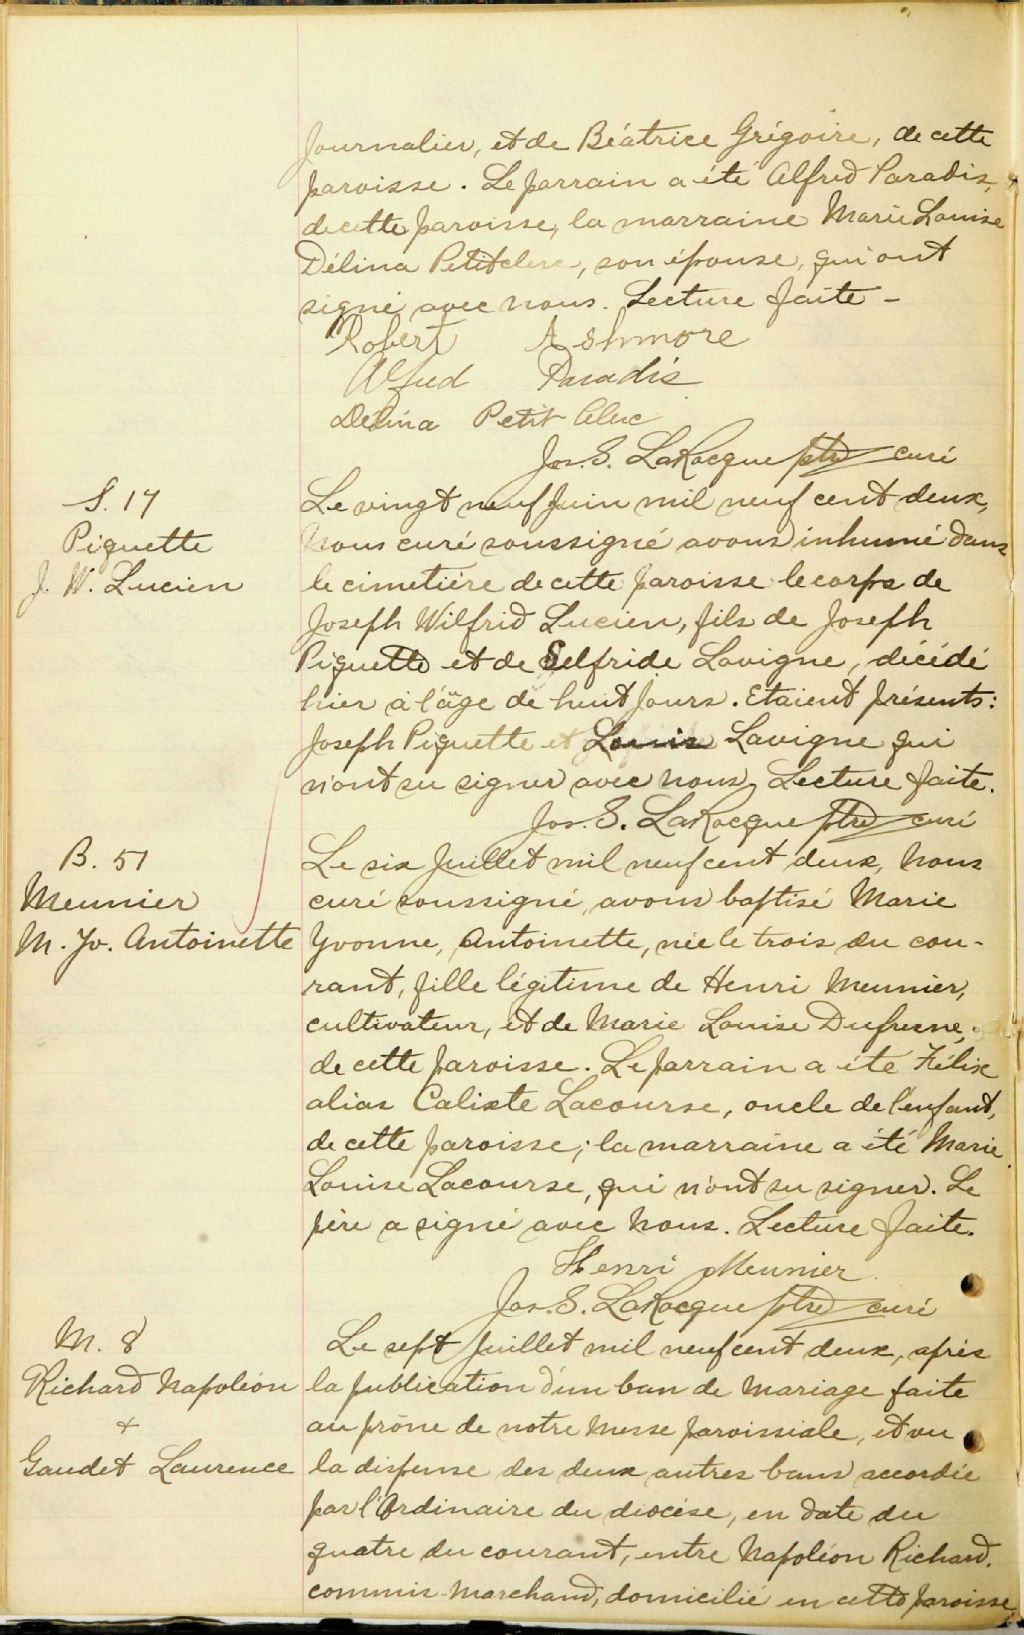 Journalier, et de Béatrice Grégoire, de cette
paroisse. Le parrain a été Alfred Paradis,
de cette paroisse, la marraine Marie Louise
Délina Petitclerc, son épouse, qui ont
signé avec nous. Lecture faite -
Robert Ashmore
Alfred Paradis
Délina Petit Clerc
Jos. S. LaRocque ptre curé
S. 17
Piquette
J. W. Lucien
Le vingt neuf Juin mil neuf cent deux,
Nous curé soussigné avons inhumé dans
le cimetière de cette paroisse le corps de
Joseph Wilfrid Lucien, fils de Joseph
Piquette et de Selfride Lavigne, décédé
hier à l'âge de huit jours. Etaient présents:
Joseph Piquette et Louis Lavigne qui
n'ont su signer avec nous. Lecture faite.
Jos. S. LaRocque ptre curé
B. 51
Meunier
M. Yv. Antoinette
Le six Juillet mil neuf cent deux, Nous
curé soussigné, avons baptisé Marie
Yvonne, Antoinette, née le trois du cou-
rant, fille légitime de Henri Meunier,
cultivateur, et de Marie Louise Dufresne,
de cette paroisse. Le parrain a été Félix
alias Calixte Lacourse, oncle de l'enfant,
de cette paroisse; la marraine a été Marie
Louise Lacourse, qui n'ont su signer. Le
père a signé avec nous. Lecture faite.
Henri Meunier
Jos. S. LaRocque ptre curé
M. 8
Richard Napoléon
+
Gaudet Laurence
Le sept Juillet mil neuf cent deux, après
la publication d'un ban de mariage faite
au prône de notre messe paroissiale, et vu
la dispense des deux autres bans accordée
par l'Ordinaire du diocèse, en date du
quatre du courant, entre Napoléon Richard,
commis-marchand, domicilié en cette paroisse,